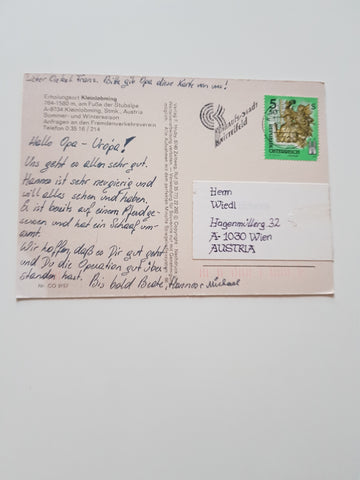 Lieber Onkel Franz. Bitte gib Opa diese Karte von uns!
Erholungsort Kleinlobming
764-1580 m, am Fuße der Stubalpe
A-8734 Kleinlobming, Stmk., Austria
Sommer- und Wintersaison
Anfragen an den Fremdenverkehrsverein
Telefon 0 35 16 / 214
Hallo Opa - Uropa!
Uns geht es allen sehr gut.
Hanno ist sehr neugierig und
will alles sehen und haben.
Er ist bereits auf einem Pferd ge-
sessen und hat ein Schaf um-
armt.
Wir hoffen, daß es Dir gut geht
und Du die Operation gut über-
standen hast. Bis bald Beate, Hanno & Michael
Nr. CO 9157
5 S
ÖSTERREICH
Herrn
Wiedl
Hagenmüllerg 32
A-1030 Wien
AUSTRIA